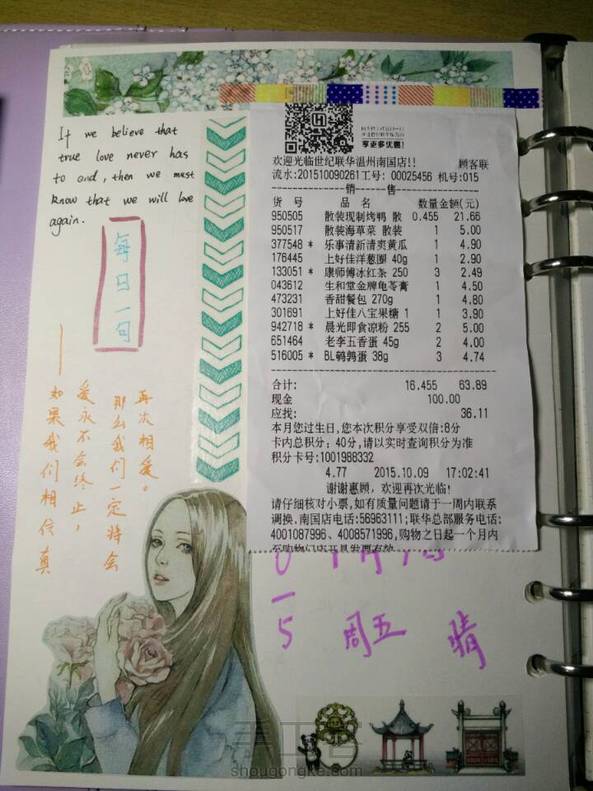 If we believe that
true love never has
to end, then we must
know that we will love
again.
每日一句
——如果我们相信真
爱永不会终止，
那么我们一定将会
再次相爱。
享更多优惠!
欢迎光临世纪联华温州南国店!! 顾客联
流水:201510090261工号: 00025456 机号:015
销 售
货 号 品 名 数量金额(元)
950505 散装现制烤鸭 散 0.455 21.66
950517 散装海草菜 散装 1 5.00
377548 * 乐事清新清爽黄瓜 1 4.90
176445 上好佳洋葱圈 40g 1 2.90
133051 * 康师傅冰红茶 250 3 2.49
043612 生和堂金牌龟苓膏 1 4.50
473231 香甜餐包 270g 1 4.80
301691 上好佳八宝果糖 1 1 3.90
942718 * 晨光即食凉粉 255 2 5.00
651464 老李五香蛋 45g 2 4.00
516005 * BL鹌鹑蛋 38g 3 4.74
合计: 16.455 63.89
现金 100.00
应找: 36.11
本月您过生日,您本次积分享受双倍:8分
卡内总积分: 40分,请以实时查询积分为准
积分卡号:1001988332
4.77 2015.10.09 17:02:41
谢谢惠顾, 欢迎再次光临!
请仔细核对小票,如有质量问题请于一周内联系
调换. 南国店电话:56963111;联华总部服务电话:
4001087996、4008571996,购物之日起一个月内
一
5 周五 晴
shougongke.com